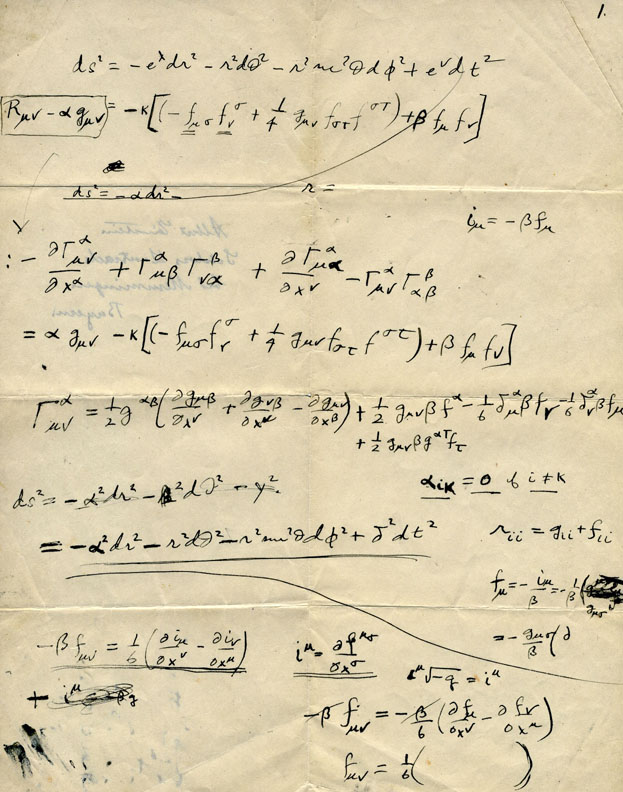 1.
ds² = -e^λ dr² - r²dθ² - r² sin²θ dφ² + e^ν dt²
R_μν - α g_μν = -κ[(-f_μσ f_ν^σ + 1/4 g_μν f_στ f^στ) + β f_μ f_ν]
ds² = -α dr² - r =
i_μ = -β f_μ
: - ∂Γ^α_μν/∂x^α + Γ^α_μβ Γ^β_να + ∂Γ^α_μα/∂x^ν - Γ^α_μν Γ^β_αβ
= α g_μν - κ[(-f_μσ f_ν^σ + 1/4 g_μν f_στ f^στ) + β f_μ f_ν]
Γ^α_μν = 1/2 g^αβ (∂g_μβ/∂x^ν + ∂g_νβ/∂x^μ - ∂g_μν/∂x^β) + 1/2 g_μν β f^α - 1/6 δ_μ^α β f_ν - 1/6 δ_ν^α β f_μ
+ 1/2 g_μν β g^ατ f_τ
α_iκ = 0 if i ≠ κ
ds² = -α² dr² - dθ²
= -α² dr² - r² dθ² - r² sin²θ dφ² + δ² dt²
r_ii = g_ii + f_ii
f_μ = - i_μ/β = - 1/β (
= - g_μσ/β (∂
-β f_μν = 1/6 (∂i_μ/∂x^ν - ∂i_ν/∂x^μ)
i^μ = ∂f^μσ/∂x^σ
i^μ √-g = i^μ
+ i^μ
-β f_μν = - β/6 (∂f_μ/∂x^ν - ∂f_ν/∂x^μ)
f_μν = 1/6 ( )